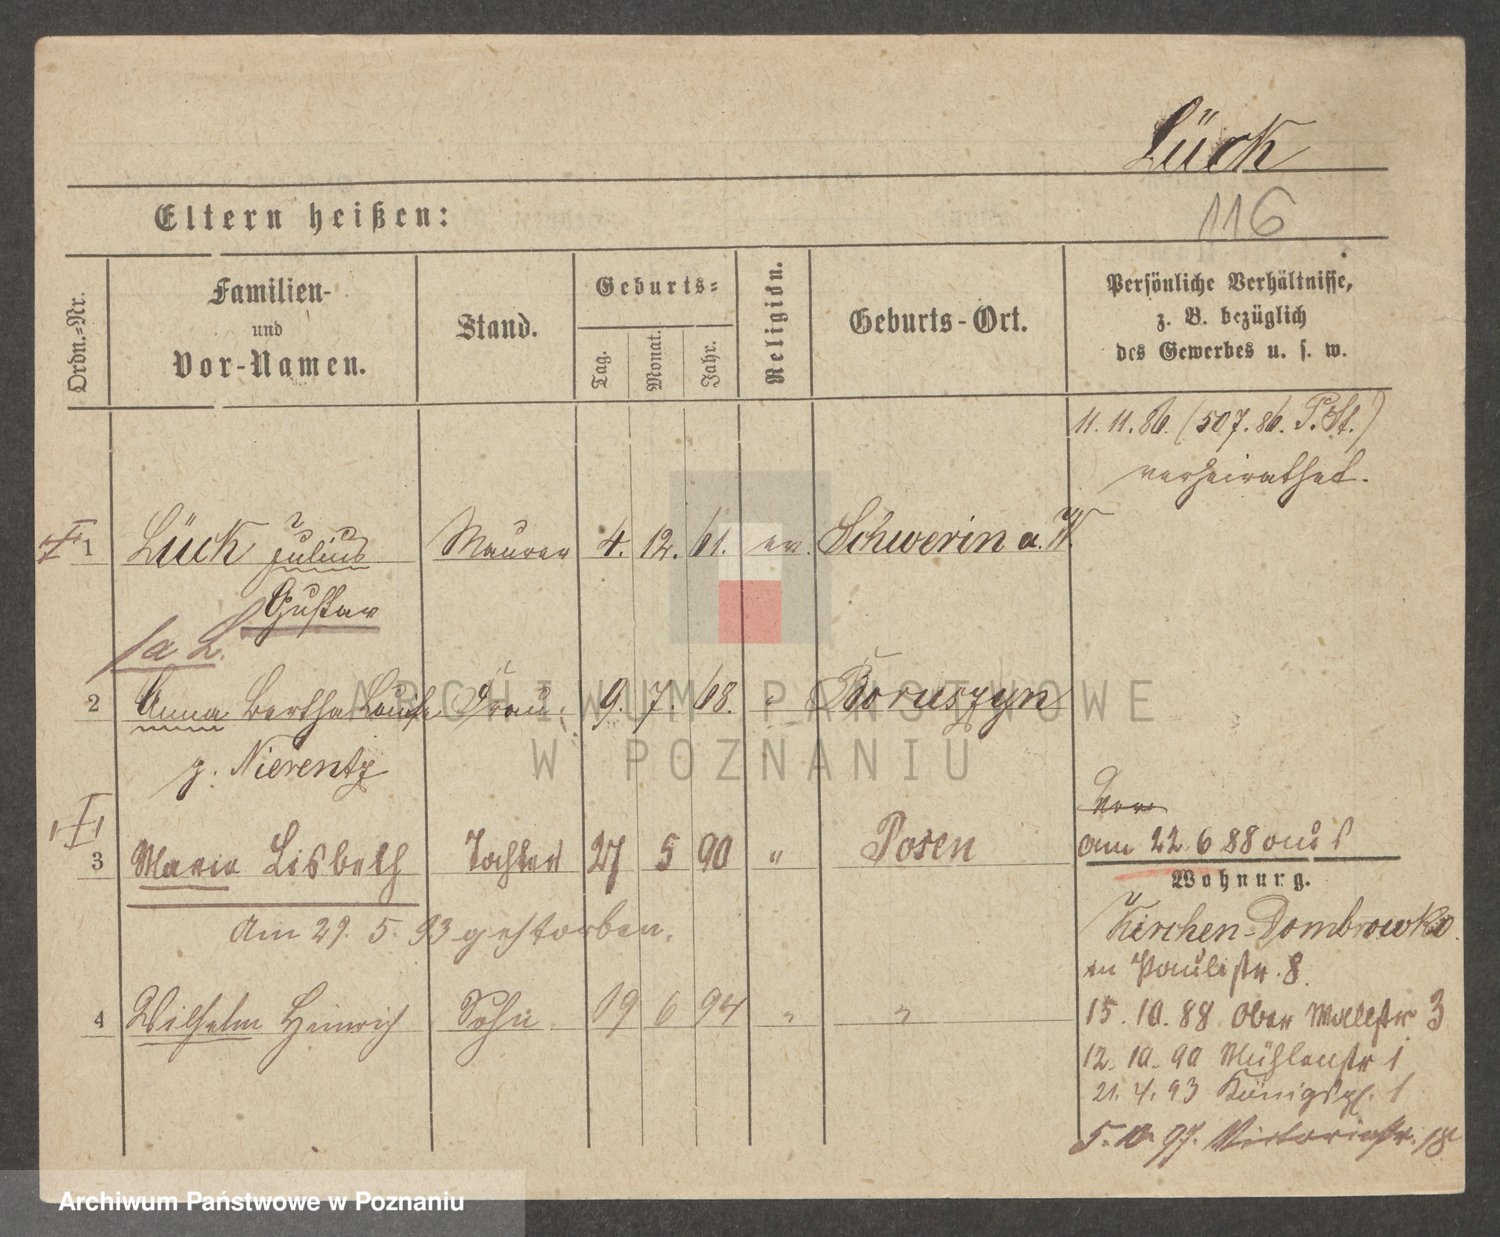 Lück
116
Eltern heißen:
Ordn.-Nr.
Familien-
und
Vor-Namen.
Stand.
Geburts-
Tag.
Monat.
Jahr.
Religion.
Geburts-Ort.
Persönliche Verhältnisse,
z. B. bezüglich
des Gewerbes u. s. w.
11. 11. 86. (507. 86. P. St.)
verheirathet.
1 Lück Julius Maurer 4. 12. 61. ev. Schwerin a. W.
Gustav
a L.
2 Anna Bertha Louise Frau 9. 7. 68. " Boruszyn
g. Nierentz
3 Maria Lisbeth Tochter 27 5 90 " Posen
Am 29. 5. 93 gestorben.
4 Wilhelm Heinrich Sohn 19 6 94 " "
am 22. 6 88 aus
Wohnung.
Kirchen-Dombrowka
in Paulistr. 8.
15. 10. 88 Ober Wallstr 3
12. 10. 90 Mühlenstr 1
21. 4. 93 Königspl. 1
5. 10. 97. Victoriastr. 18
ARCHIWUM PAŃSTWOWE
W POZNANIU
Archiwum Państwowe w Poznaniu